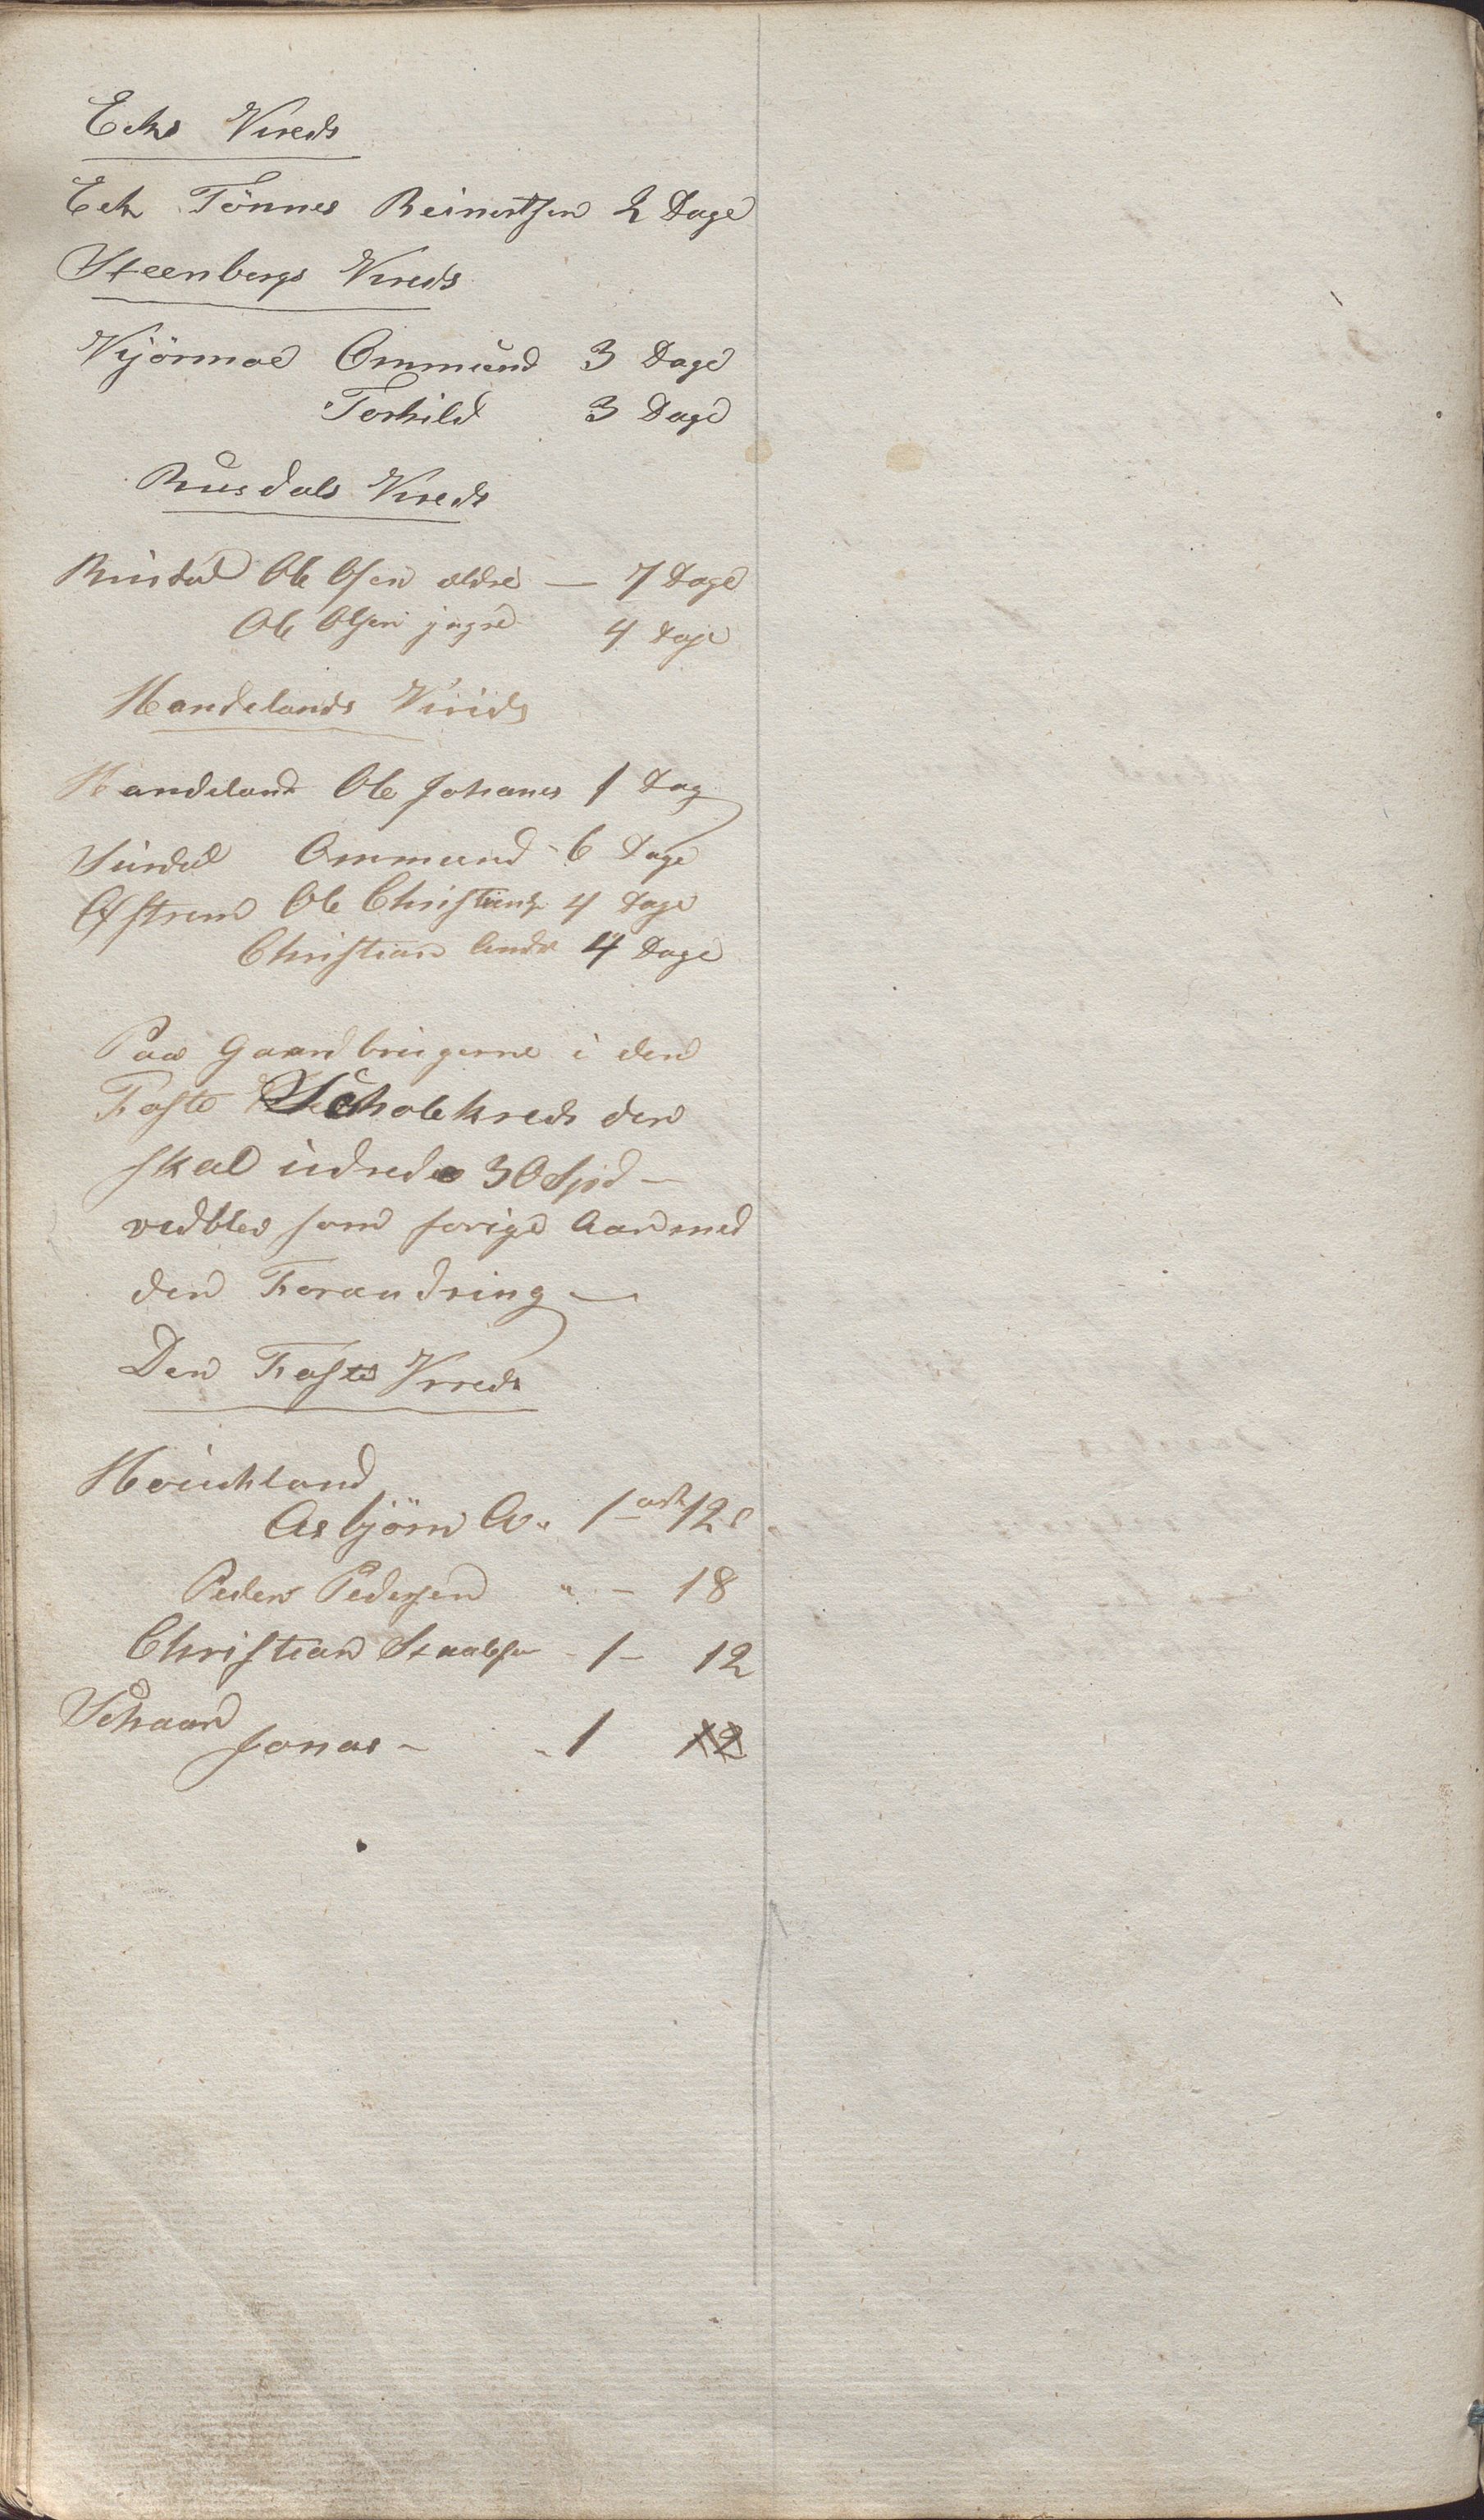 Eeks Kreds
Eek Tönnes Reinertsen 2 Dage
Steenbergs Kreds
Kjörmoe Ommund 3 Dage
Torkild 3 Dage
Rusdals Kreds
Rusdal Ole Olsen ældre — 7 Dage
Ole Olsen yngre 4 Dage
Handelands Kreds
Handeland Ole Johanes 1 Dag
Surdal Ommund 6 Dage
Ofstrem Ole Christians 4 Dage
Christian Andr 4 Dage
Paa Gaardbrugerne i den
Faste Scholekreds der
skal udrede 30 Spd —
vedblev som forige Aar med
den Forandring —
Den Faste Kreds
Houkland
Asbjörn A. 1 ort 12 s
Peder Pedersen " - 18
Christian Staalesen - 1 - 12
Schaar
Jonas - 1 12